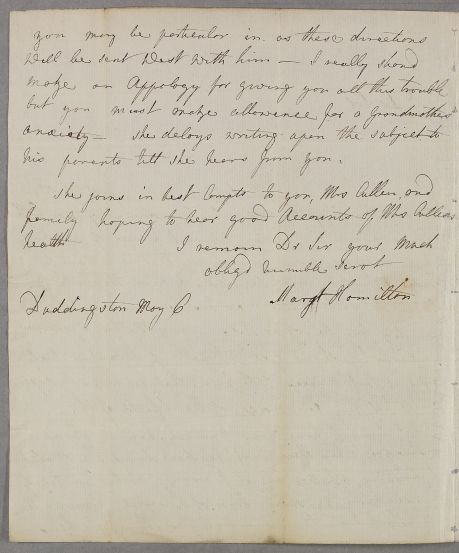 you may be particular in as these directions
will be sent West with him — I really should
make an Appology for giving you all this trouble
but you must make allowance for a Grandmothers
anxiety — she delays writing upon the subject to
his parents till she hears from you.
She joins in best Compts to you, Mrs Cullen, and
family hoping to hear good Accounts of Mrs Cullens
health I remain Dr Sir your much
obligd humble Servt
Margt Hamilton
Duddingston May 6